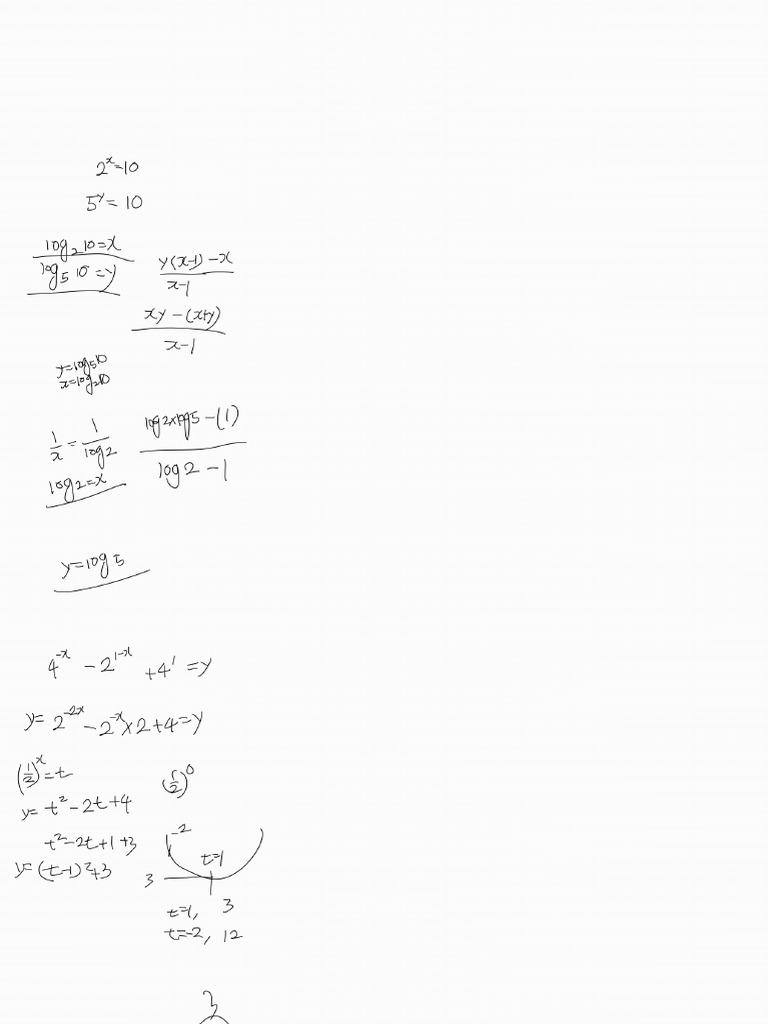 2^x=10
5^y=10
log_2 10=x
log_5 10=y
y(x-1)-x
x-1
xy-(x+y)
x-1
y=log_5 10
x=log_2 10
1/x = 1/log2
log2=x
log2×log5-(1)
log2-1
y=log5
4^-x - 2^1-x + 4^1 = y
y= 2^-2x - 2^-x × 2+4=y
(1/2)^x=t
(1/2)^0
y= t²-2t+4
t²-2t+1+3
y=(t-1)²+3
-2
t=1
3
t=1, 3
t=-2, 12
3